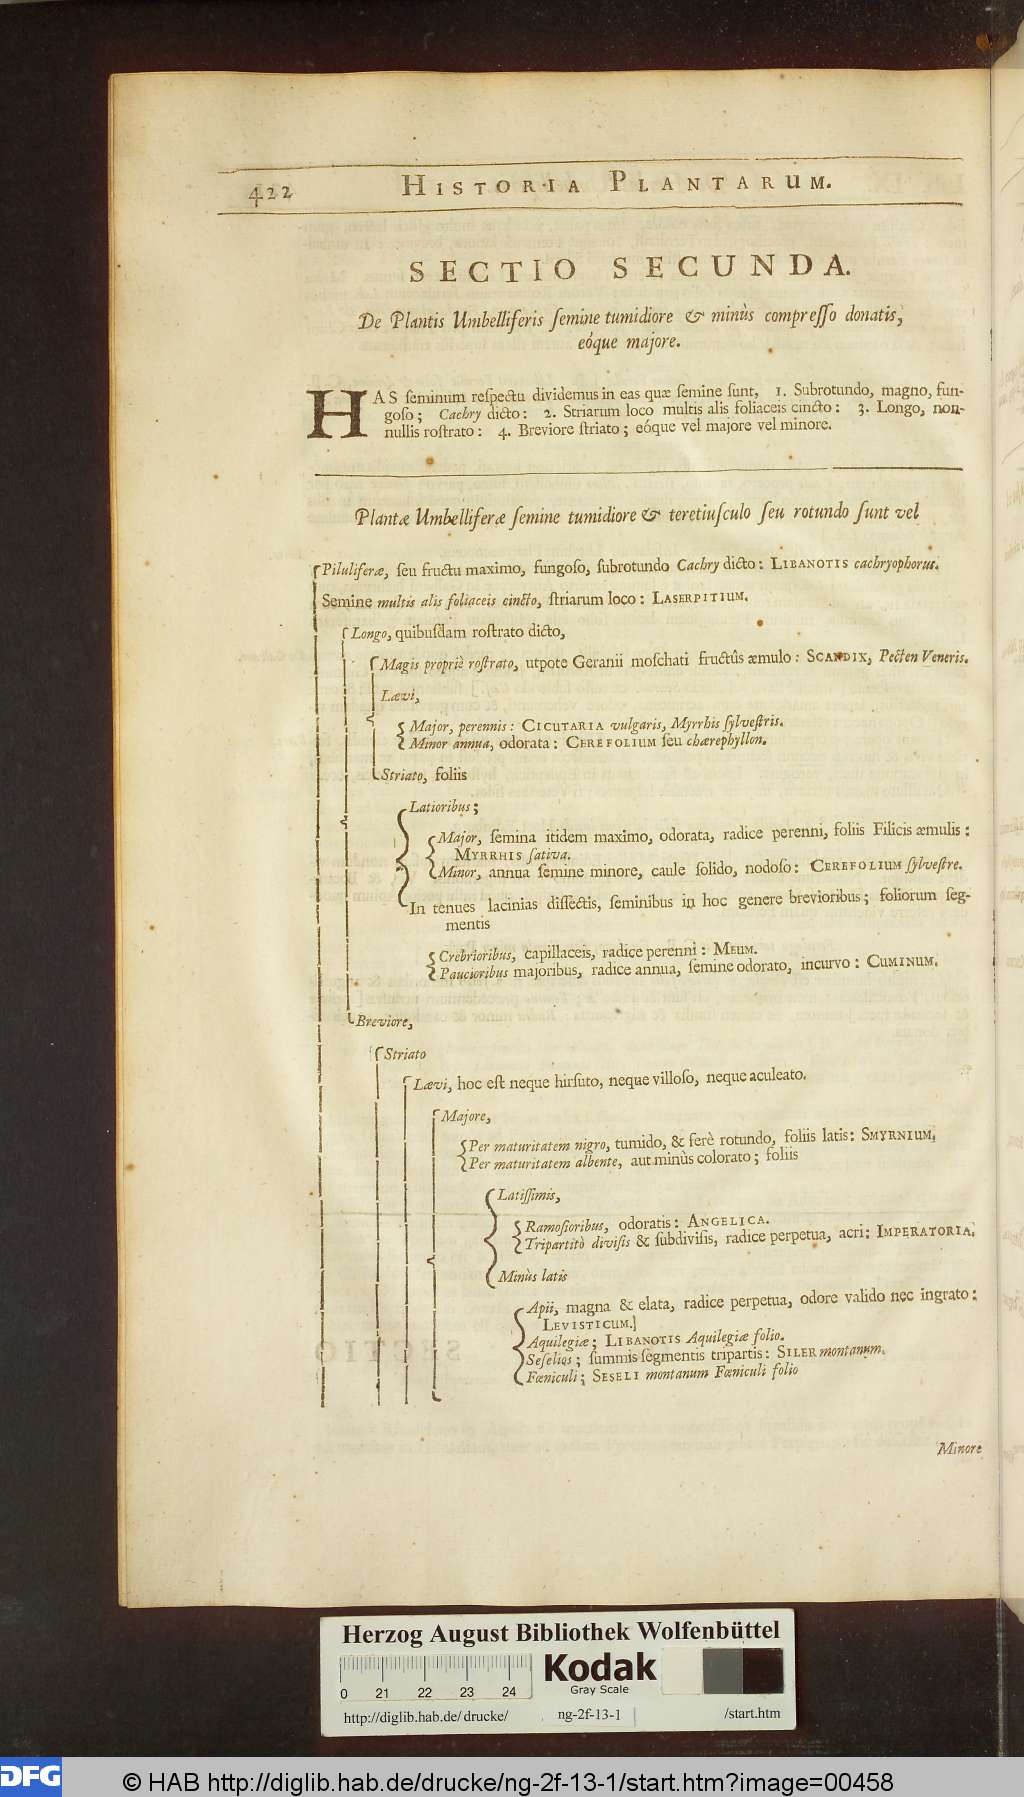 422
HISTORIA PLANTARUM.
SECTIO SECUNDA.
De Plantis Umbelliferis ſemine tumidiore & minùs compreſſo donatis,
eóque majore.
HAS ſeminum reſpectu dividemus in eas quæ ſemine ſunt, 1. Subrotundo, magno, fun-
goſo; Cachry dicto: 2. Striarum loco multis alis foliaceis cincto: 3. Longo, non-
nullis roſtrato: 4. Breviore ſtriato; eóque vel majore vel minore.
Plantæ Umbelliferæ ſemine tumidiore & teretiuſculo ſeu rotundo ſunt vel
Piluliferæ, ſeu fructu maximo, fungoſo, ſubrotundo Cachry dicto: LIBANOTIS cachryophorus.
Semine multis alis foliaceis cincto, ſtriarum loco: LASERPITIUM.
Longo, quibuſdam roſtrato dicto,
Magis propriè roſtrato, utpote Geranii moſchati fructûs æmulo: SCANDIX, Pecten Veneris.
Lævi,
Major, perennis: CICUTARIA vulgaris, Myrrhis ſylveſtris.
Minor annua, odorata: CEREFOLIUM ſeu chærephyllon.
Striato, foliis
Latioribus;
Major, ſemina itidem maximo, odorata, radice perenni, foliis Filicis æmulis:
MYRRHIS ſativa.
Minor, annua ſemine minore, caule ſolido, nodoſo: CEREFOLIUM ſylveſtre.
In tenues lacinias diſſectis, ſeminibus in hoc genere brevioribus; foliorum ſeg-
mentis
Crebrioribus, capillaceis, radice perenni: MEUM.
Paucioribus majoribus, radice annua, ſemine odorato, incurvo: CUMINUM.
Breviore,
Striato
Lævi, hoc eſt neque hirſuto, neque villoſo, neque aculeato.
Majore,
Per maturitatem nigro, tumido, & ferè rotundo, foliis latis: SMYRNIUM.
Per maturitatem albente, aut minùs colorato; foliis
Latiſſimis,
Ramoſioribus, odoratis: ANGELICA.
Tripartitò diviſis & ſubdiviſis, radice perpetua, acri: IMPERATORIA.
Minùs latis
Apii, magna & elata, radice perpetua, odore valido nec ingrato:
LEVISTICUM.]
Aquilegiæ; LIBANOTIS Aquilegiæ folio.
Seſelios; ſummis ſegmentis tripartis: SILER montanum.
Fœniculi; SESELI montanum Fœniculi folio
Minore
Herzog August Bibliothek Wolfenbüttel
Kodak
Gray Scale
0 21 22 23 24
http://diglib.hab.de/drucke/ ng-2f-13-1 /start.htm
DFG © HAB http://diglib.hab.de/drucke/ng-2f-13-1/start.htm?image=00458